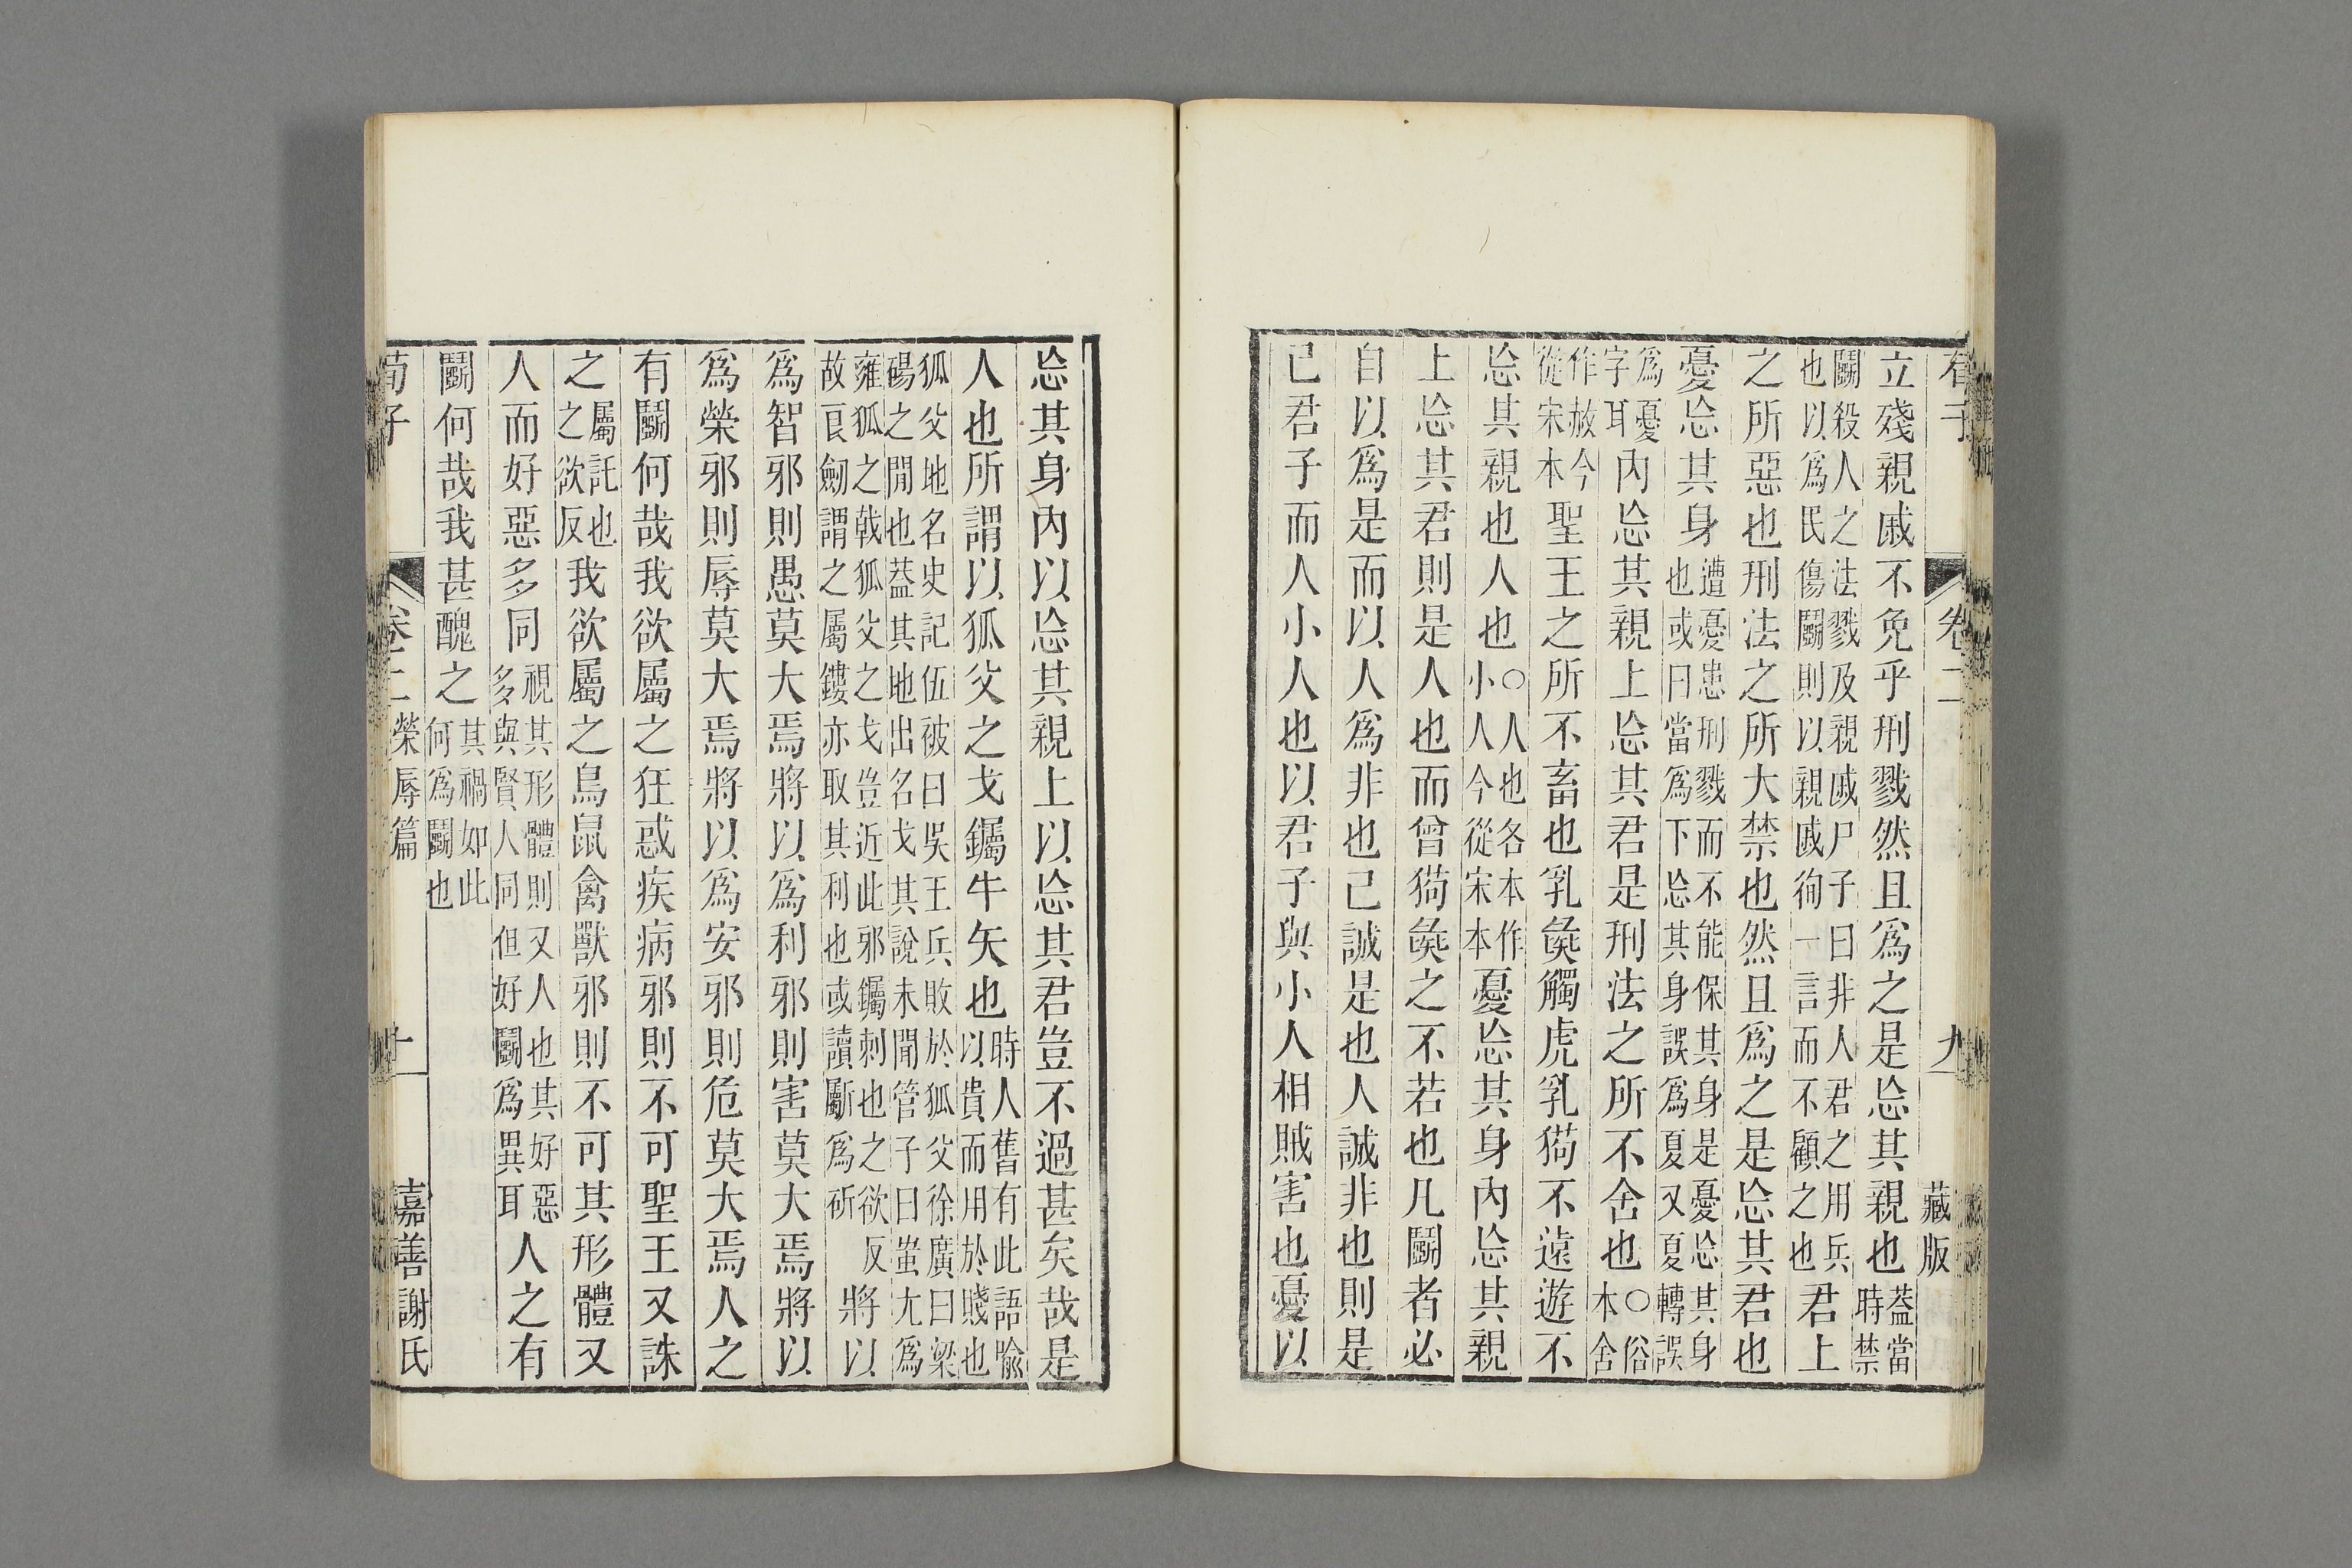 荀子 卷二 九 藏版
立殘親戚不免乎刑戮然且爲之是忘其親也蓋當時禁
鬬殺人之法戮及親戚尸子曰非人君之用兵也以爲民傷鬬則以親戚徇一言而不顧之也君上
之所惡也刑法之所大禁也然且爲之是忘其君也
憂忘其身遭憂患刑戮而不能保其身是憂忘其身也或曰當爲下忘其身誤爲夏又夏轉誤
爲憂字耳内忘其親上忘其君是刑法之所不舍也○俗本舍
作赦今從宋本聖王之所不畜也乳彘觸虎乳㺃不遠遊不
忘其親也人也○人也各本作小人今從宋本憂忘其身内忘其親
上忘其君則是人也而曾㺃彘之不若也凡鬬者必
自以爲是而以人爲非也己誠是也人誠非也則是
己君子而人小人也以君子與小人相賊害也憂以
忘其身内以忘其親上以忘其君豈不過甚矣哉是
人也所謂以狐父之戈钃牛矢也時人舊有此語喻以貴而用於賤也
狐父地名史記伍被曰吳王兵敗於狐父徐廣曰梁碭之閒也蓋其地出名戈其說未聞管子曰蚩尤爲
雍狐之戟狐父之戈豈近此邪钃刺也之欲反故良劒謂之屬鏤亦取其利也或讀斸爲斫將以
爲智邪則愚莫大焉將以爲利邪則害莫大焉將以
爲榮邪則辱莫大焉將以爲安邪則危莫大焉人之
有鬬何哉我欲屬之狂惑疾病邪則不可聖王又誅
之屬託也之欲反我欲屬之鳥鼠禽獸邪則不可其形體又
人而好惡多同視其形體則又人也其好惡多與賢人同但好鬬爲異耳人之有
鬬何哉我甚醜之其禍如此何爲鬬也
荀子 卷二 榮辱篇 十 嘉善謝氏